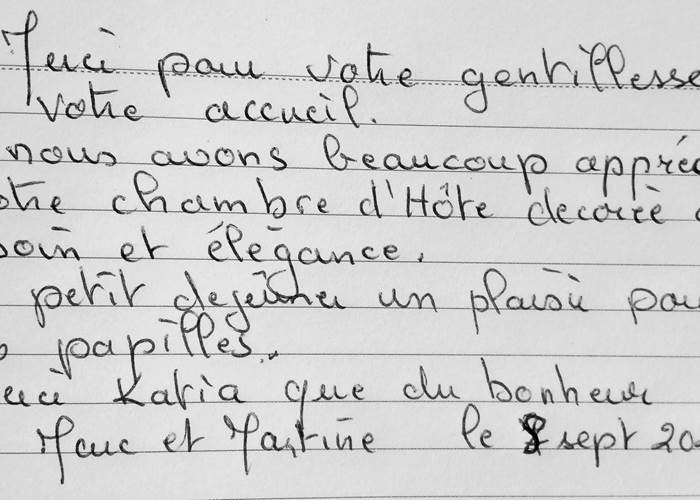 Merci pour votre gentillesse
votre accueil.
nous avons beaucoup appréc
otre chambre d'Hôte decorée
soin et élégance.
petit dejeuner un plaisir pou
papilles..
erci Katia que du bonheur
Marc et Martine le 8 sept 20